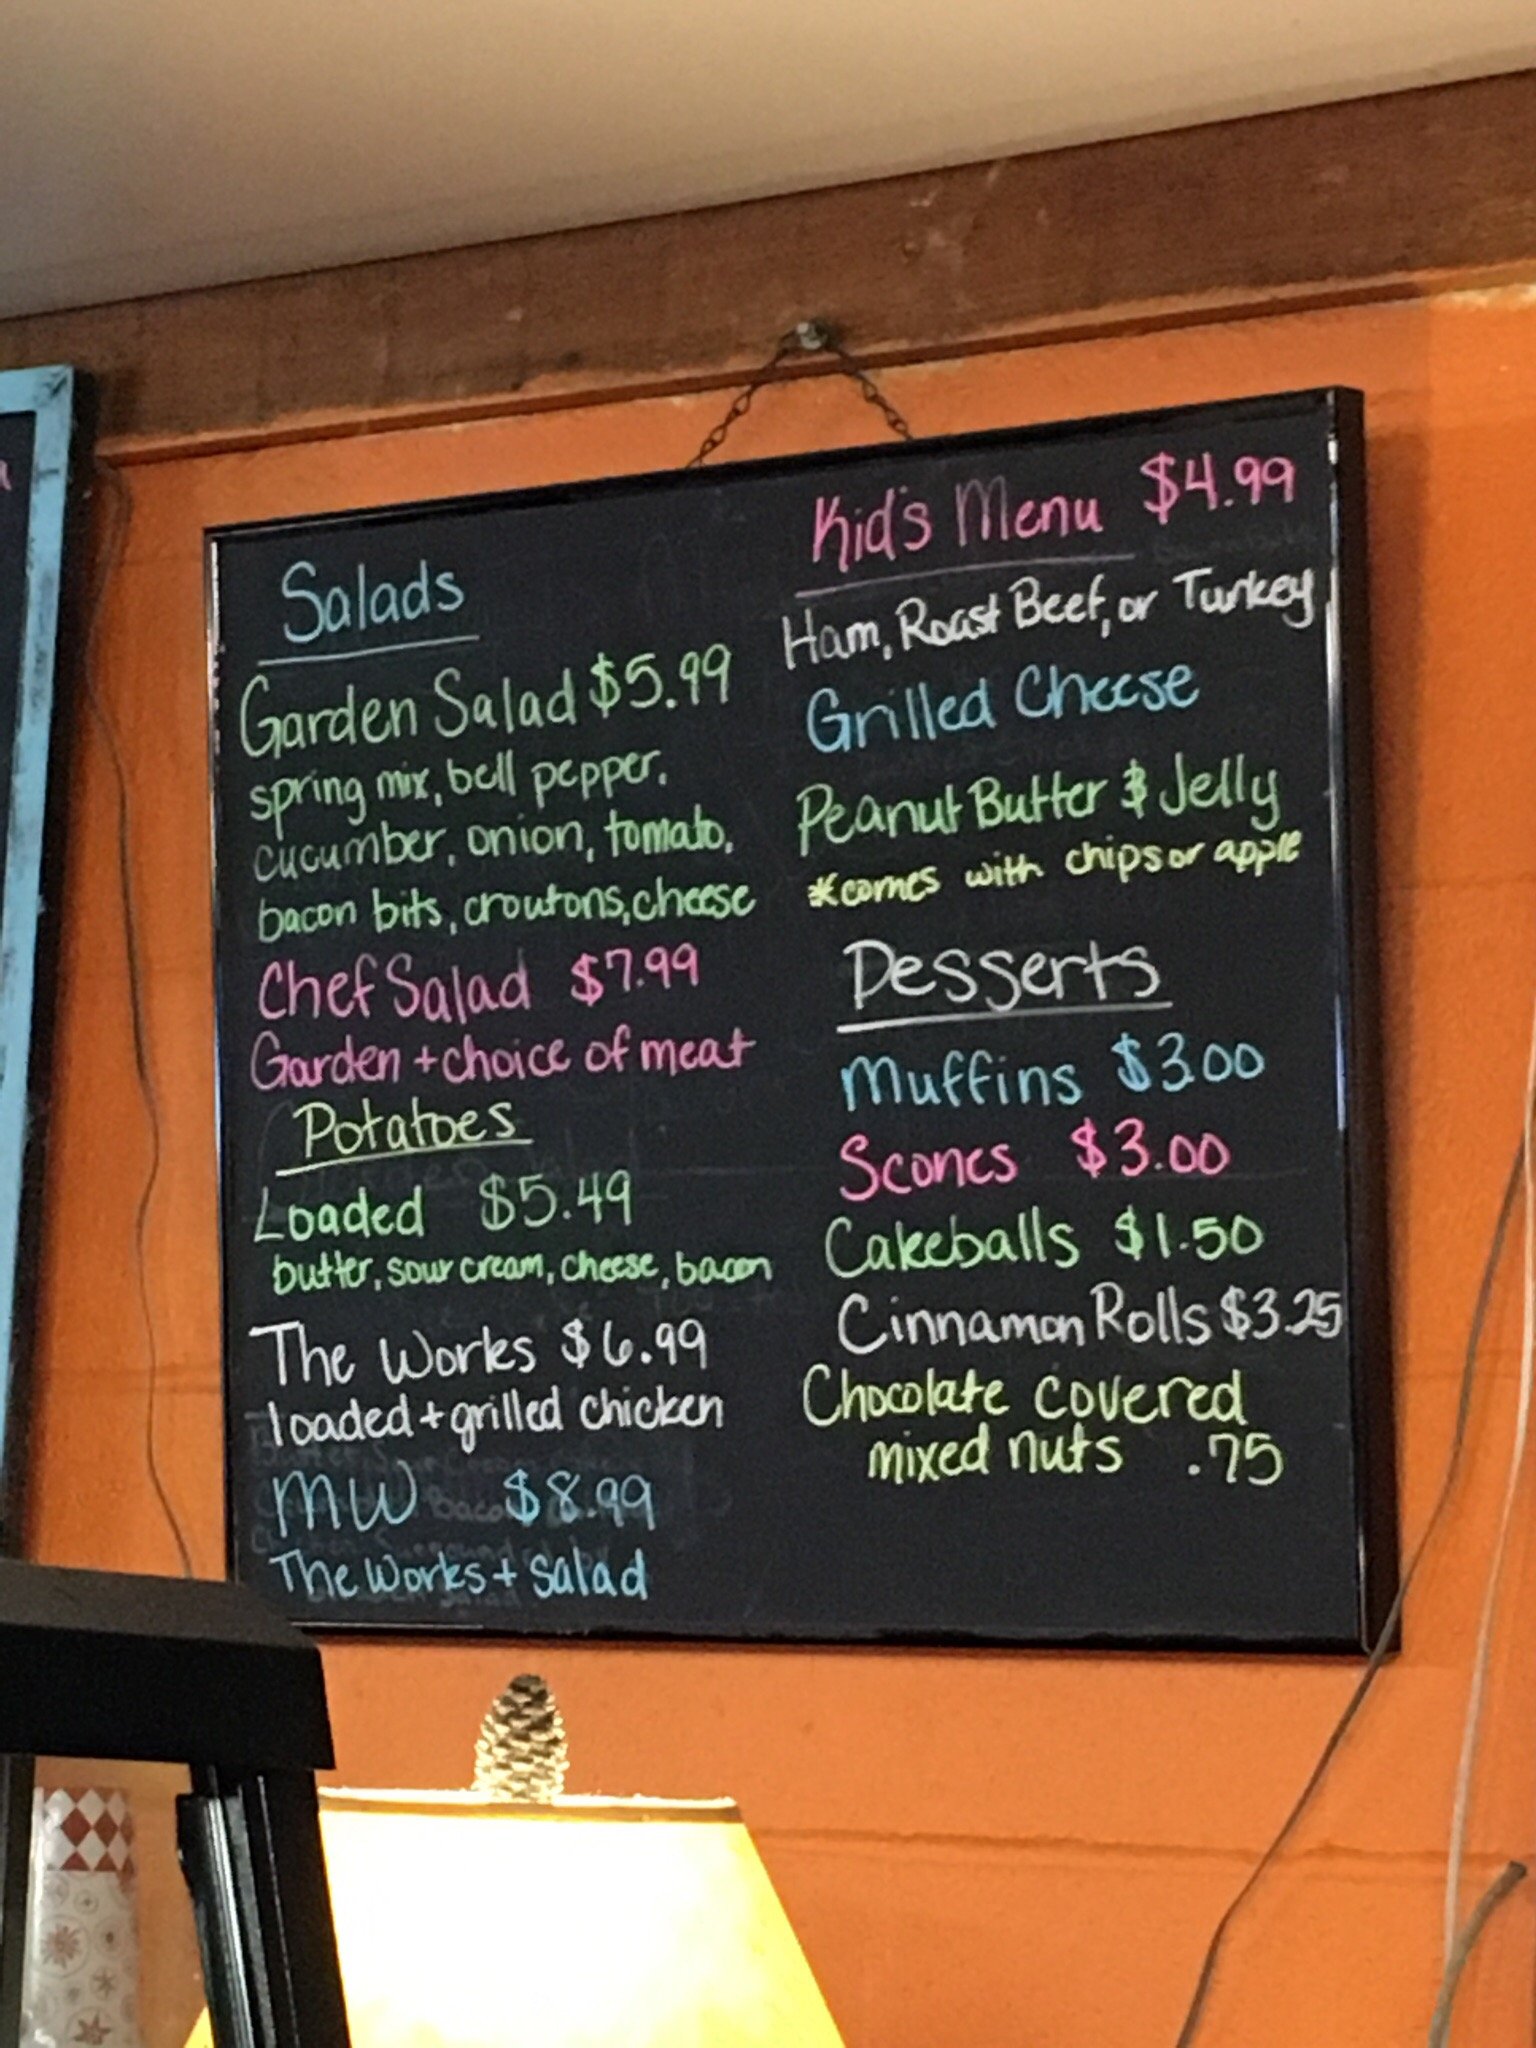 Salads
Garden Salad $5.99
spring mix, bell pepper,
cucumber, onion, tomato,
bacon bits, croutons, cheese
Chef Salad $7.99
Garden + choice of meat
Potatoes
Loaded $5.49
butter, sour cream, cheese, bacon
The Works $6.99
loaded + grilled chicken
MW $8.99
The Works + salad
Kid's Menu $4.99
Ham, Roast Beef, or Turkey
Grilled Cheese
Peanut Butter & Jelly
*comes with chips or apple
Desserts
Muffins $3.00
Scones $3.00
Cakeballs $1.50
Cinnamon Rolls $3.25
Chocolate covered
mixed nuts .75